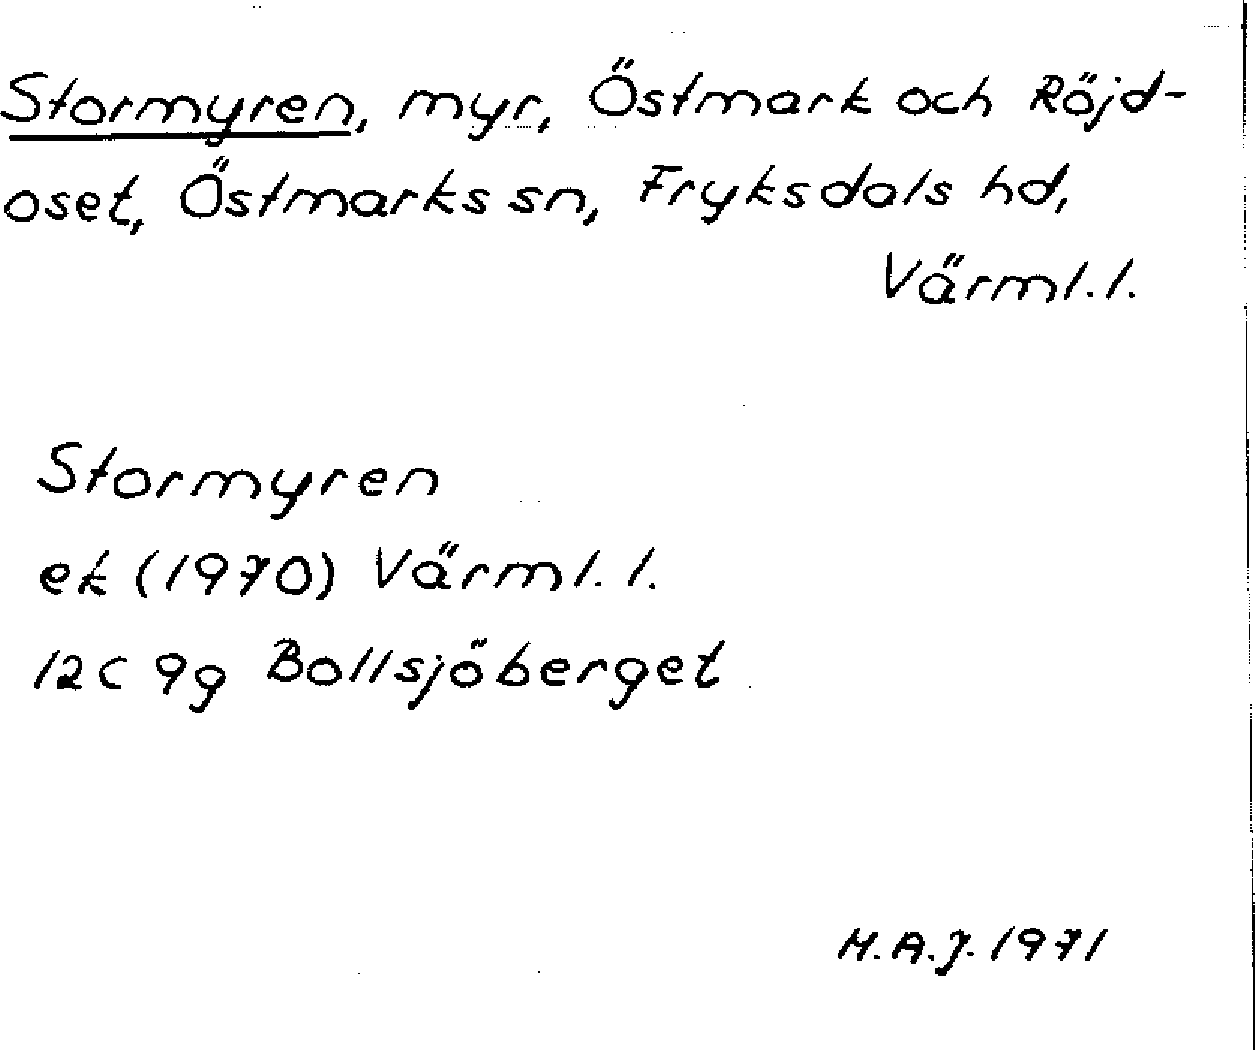 Stormyren, myr, Östmark och Röjd-
oset, Östmarks sn, Fryksdals hd,
Värml. l.
Stormyren
ek (1970) Värml. l.
12C 9g Bollsjöberget
H.A.J. 1971